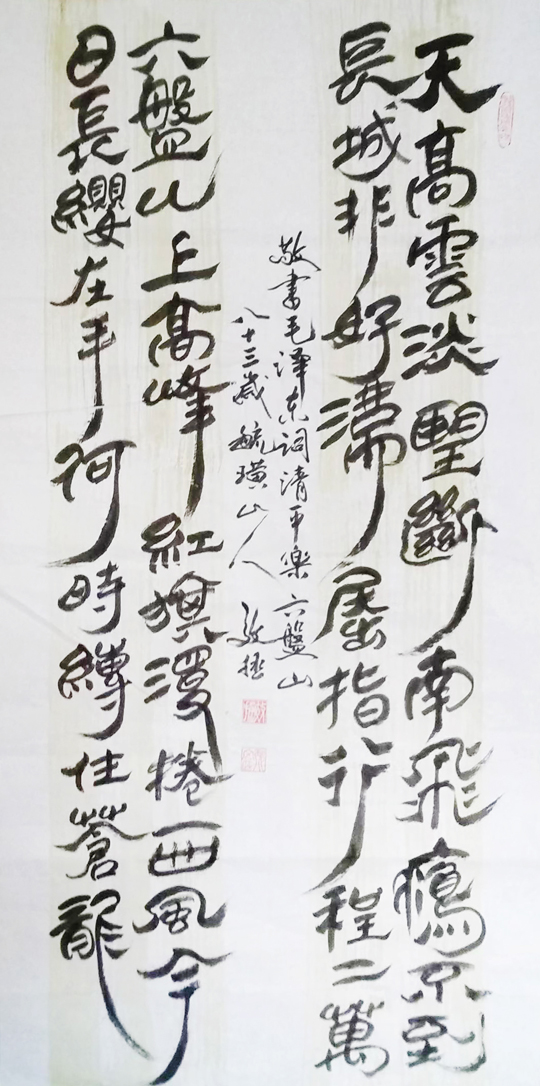 天高雲淡望斷南飛鴈不到
長城非好漢屈指行程二萬
敬書毛澤东词清平樂六盤山
八十三歲毓璜山人
六盤山上高峰紅旗漫捲西風今
日長纓在手何時縛住蒼龍